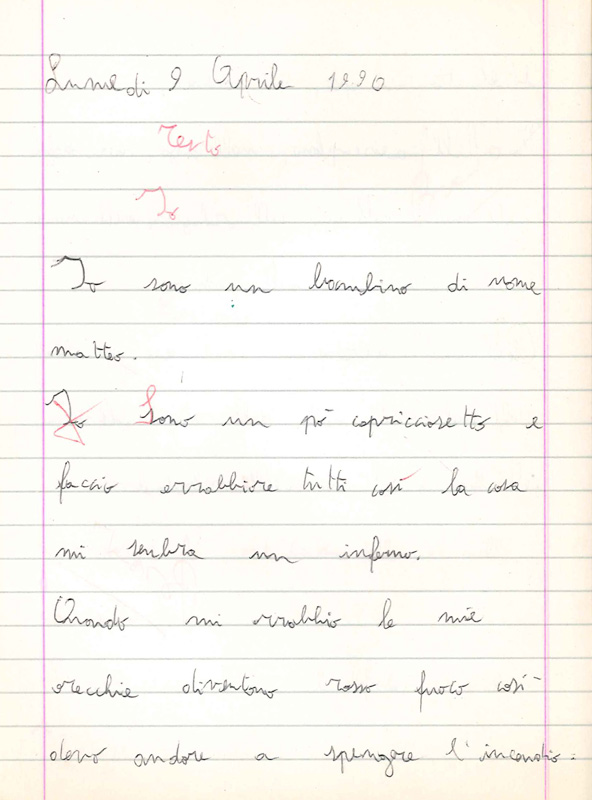 Lunedi 9 Aprile 1990
Testo
Io
Io sono un bambino di nome
matteo.
Io Sono un pò capricciosetto e
faccio arrabbiare tutti così la cosa
mi senbra un inferno.
Quando mi arrabbio le mie
orecchie diventano rosso fuoco così
devo andare a spengere l'incendio.